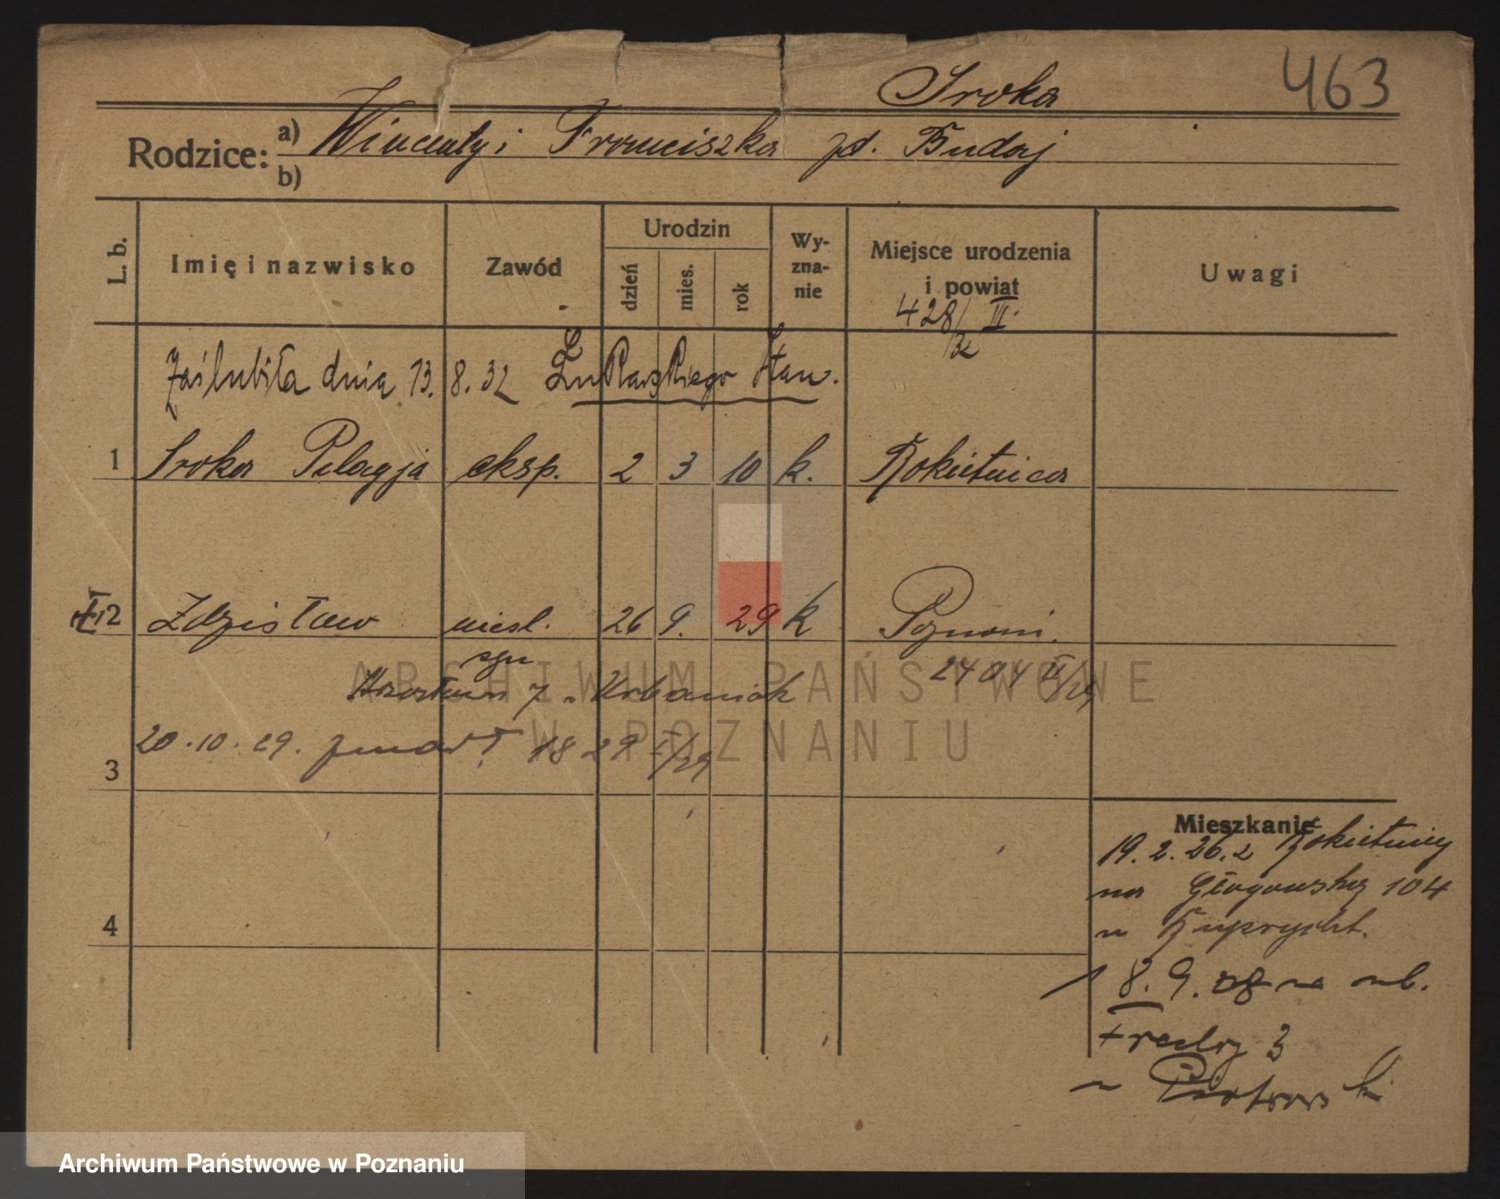 463
Sroka
Rodzice: a) Wincenty i Franciszka zd. Budaj
b)
L. b. Imię i nazwisko Zawód Urodzin dzień mies. rok Wy-zna-nie Miejsce urodzenia i powiat Uwagi
428/III.
32
Zaślubiła dnia 13.8.32 Łukarskiego Stan.
1 Sroka Pelagja eksp. 2 3 10 k. Rokietnica
2 Zdzisław nieśl. 26 9. 29 k Poznań.
syn 2404 II/29
7 Urbaniak
20.10.29. zmarł 1829 I/29
3
Mieszkanie
19.2.26. z Rokietnicy
na Głogowska 104
4 u
8.9.28 na ul.
Fredry 3
u Piotrowski
ARCHIWUM PAŃSTWOWE
W POZNANIU
Archiwum Państwowe w Poznaniu